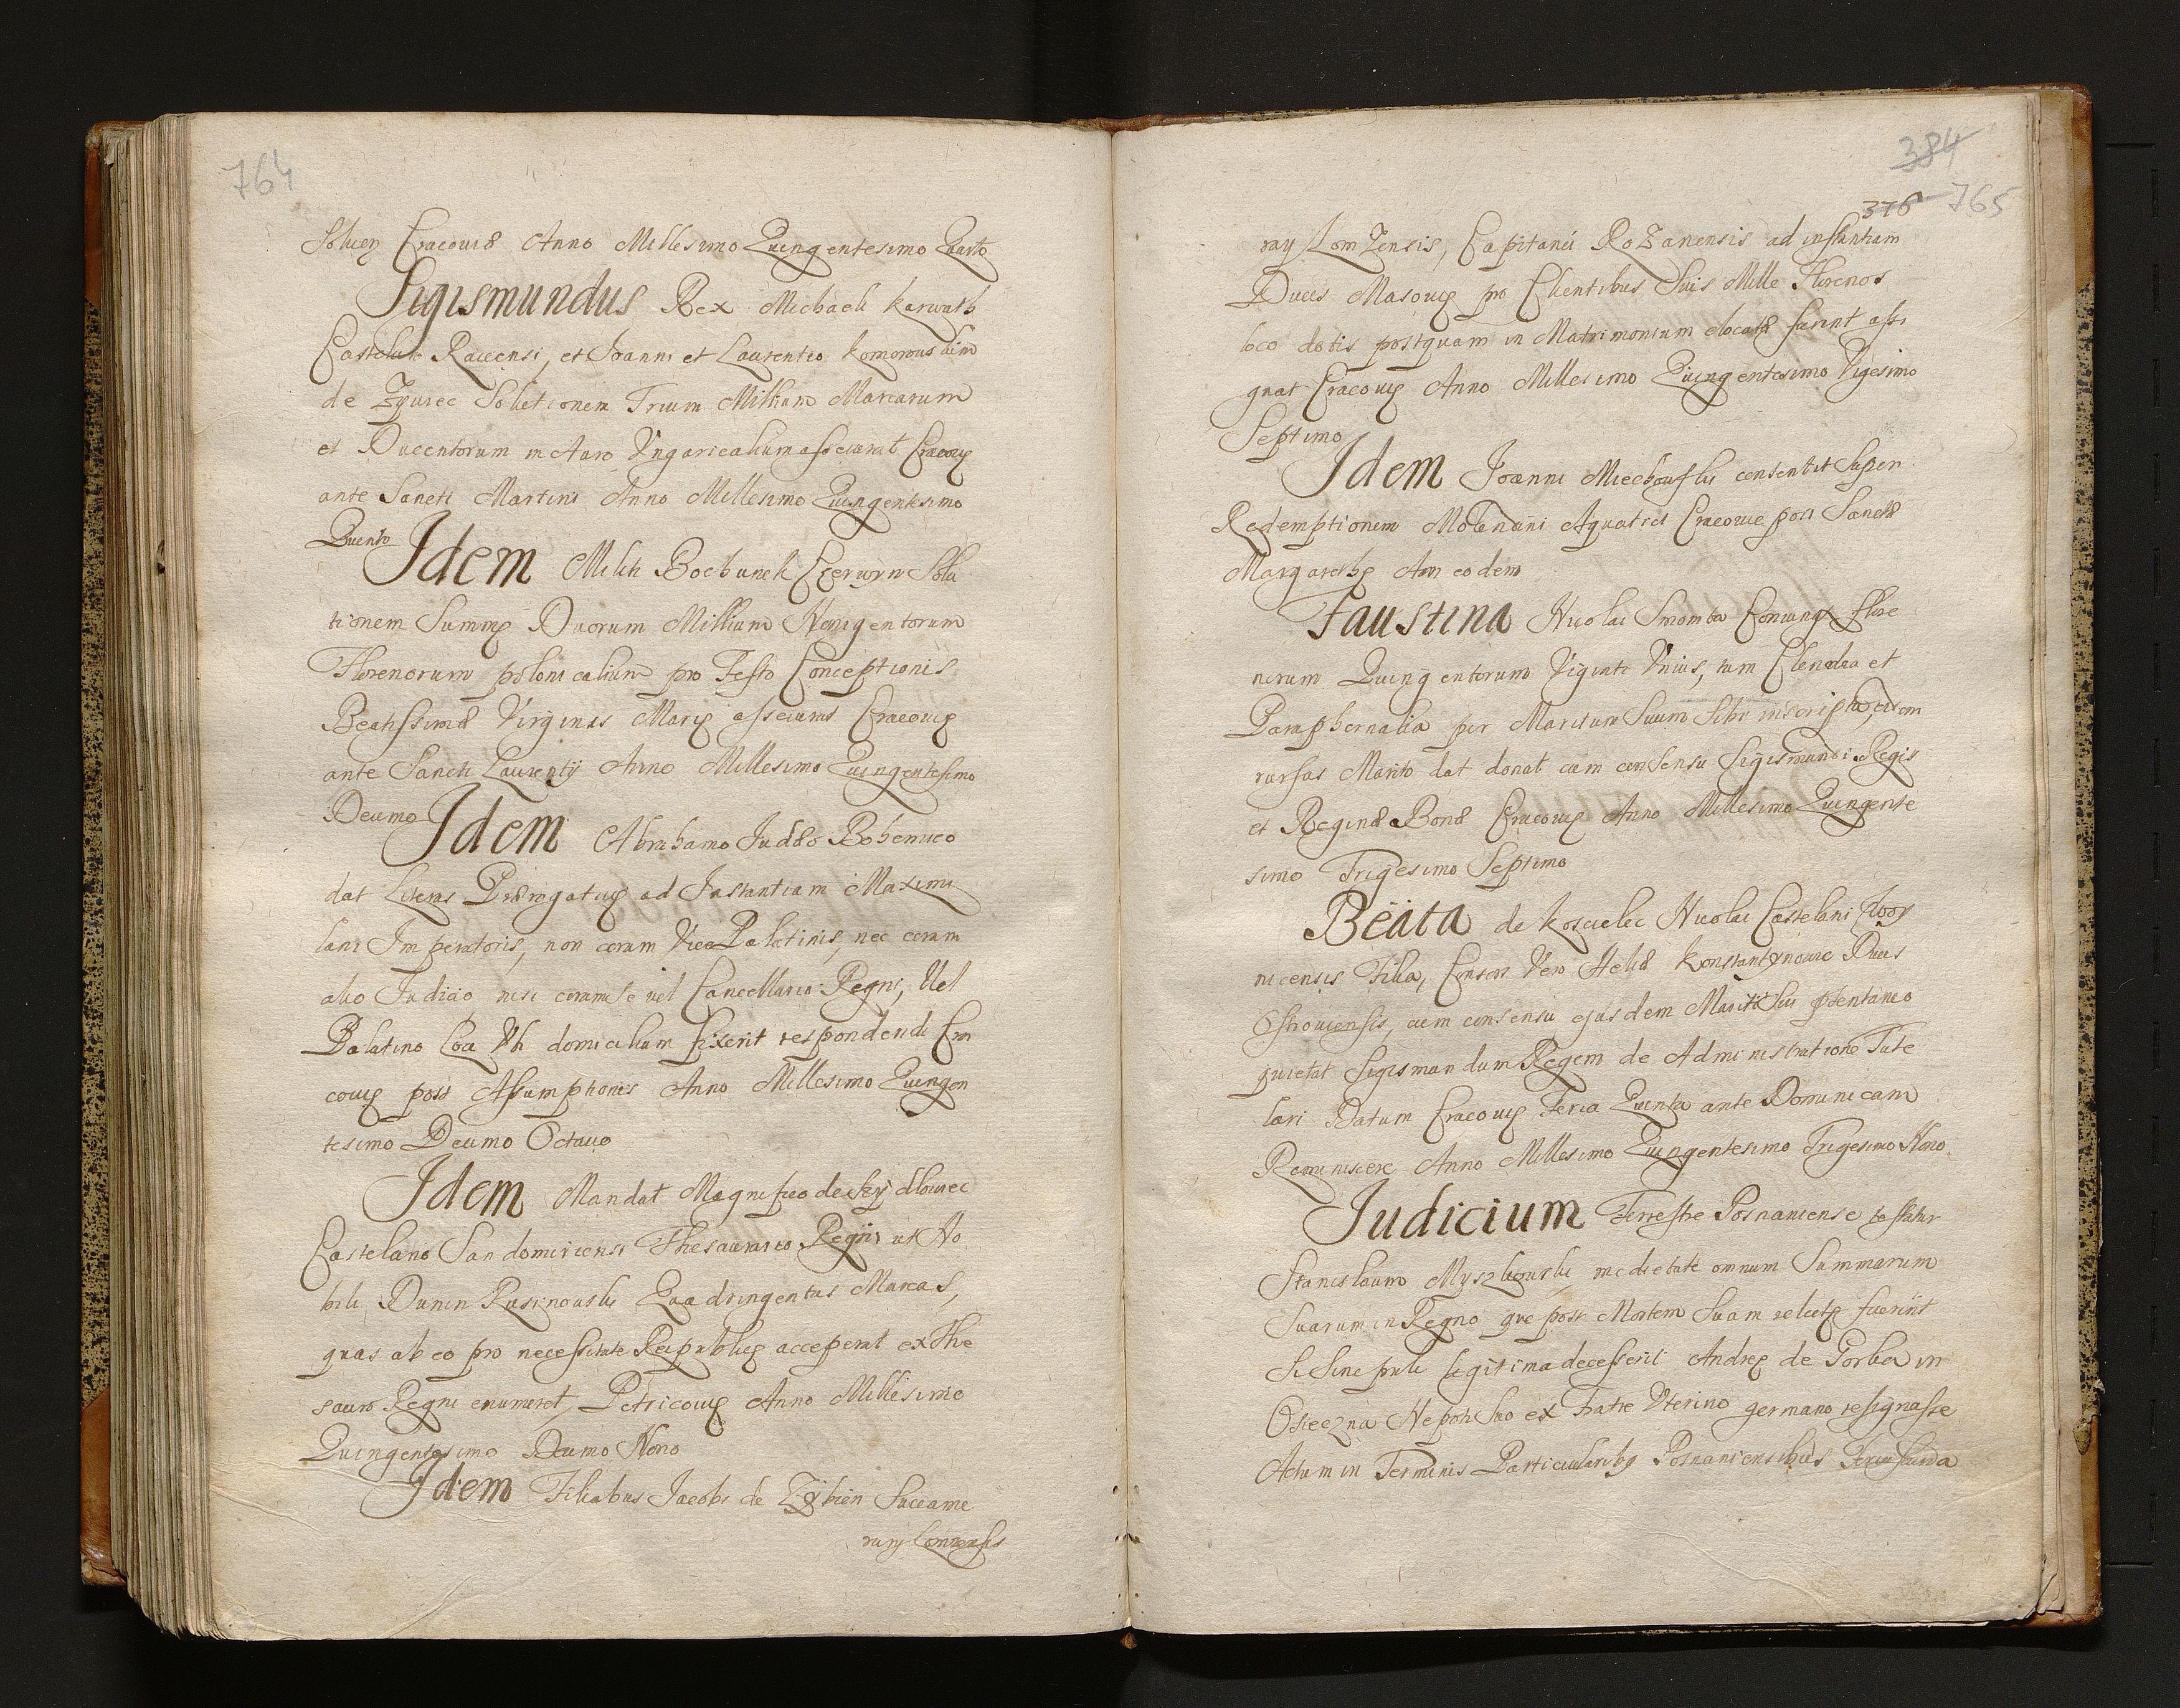 764
Soluen Cracouiæ Anno Millesimo Quingentesimo Quarto
Sigismundus Rex Michaeli Karwath
Castelano Raccensi, et Joanni et Laurentio Komorouskim
de Zywiec Solutionem Trium Millium Marcarum
et Ducentorum in Auro Vngaricalium assecurat Cracouię
ante Sancti Martini Anno Millesimo Quingentesimo
Quinto
Idem Militi Bochunek Czerwyn Solu
tionem Summę Duorum Millium Nongentorum
Florenorum polonicalium pro Festo Conceptionis
Beatissimæ Virginis Marię assecurat Cracouię
ante Sancti Laurentij Anno Millesimo Quingentesimo
Decimo
Idem Abrahamo Judæo Bohemico
dat Literas Prærogatiuę ad Instantiam Maximi
liani Imperatoris, non coram Vice Palatinis, nec coram
alio Judicio nisi coram se vel Cancellario Regni, Vel
Palatino Loci Vbi domicilium fixerit respondendi Cra
couię post Assumptionis Anno Millesimo Quingen
tesimo Decimo Octauo
Idem Mandat Magnifico de Szydlowiec
Castelano Sandomiriensi Thesaurario Regni ut No
bili Dunin Rusinouski Quadringentas Marcas,
quas ab eo pro necessitate Reipublicę acceperat ex The
sauro Regni enumeret, Petricouię Anno Millesimo
Quingentesimo Decimo Nono
Idem Filiabus Jacobi de Zybien Succame
rarij Lomzensis
384
376 765
rarij Lomzensis, Capitanei Rozanensis ad instantiam
Ducis Masouię pro Clientibus Suis Mille Florenos
loco dotis postquam in Matrimonium elocatæ fuerint assi
gnat Cracouię Anno Millesimo Quingentesimo Vigesimo
Septimo
Idem Joanni Miechouski consentit Super
Redemptionem Molendini Aquatici Cracouie post Sanctæ
Margarethę Ann eodem
Faustina Nicolai Coniunx Flore
norum Quingentorum Viginti Vnius, tum Clenodia et
Parsphernalia per Maritum Suum Sibi inscripta, eidem
rursus Marito dat donat cum consensu Sigismundi Regis
et Reginæ Bonæ Cracouię Anno Millesimo Quingente
simo Trigesimo Septimo
Beata de Koscielec Nicolai Castelani
nicensis Filia, Consors Vero Heliæ Konstantynouic Ducis
Ostrouiensis, cum consensu ejusdem Mariti Sui ptentaneo
quietat Sigismundum Regem de Administratione Tute
lari Datum Cracouię Feria Quinta ante Dominicam
Reminiscere Anno Millesimo Quingentesimo Trigesimo Nono
Judicium Terrestre Posnaniense testatur
Stanislaum Myszkouski medietate omnium Summarum
Suarum in Regno que post Mortem Suam relictę fuerint
Si Sine prole legitima decesserit Andreę de Gorka in
Osieczna Nepoti Suo ex Fratre Vterino germano resignasse
Actum in Terminis Particularibq Posnaniensibus Feria Secunda